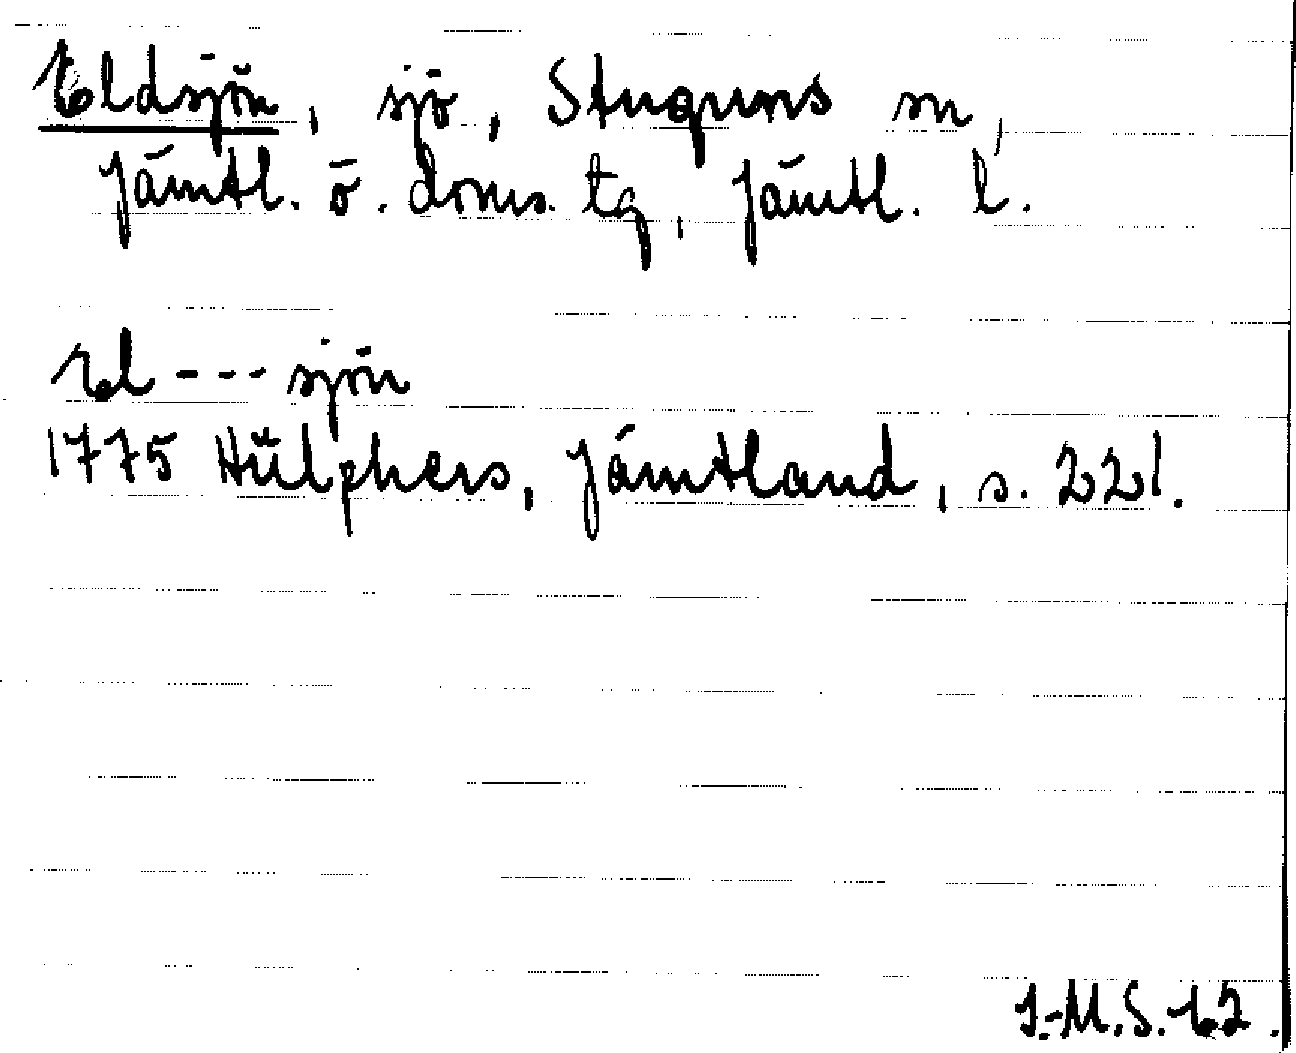 Eldsjön, sjö, Stuguns sn,
Jämtl. ö. doms. tg, Jämtl. l.
El---sjön
1775 Hülphers, Jämtland, s. 221.
I.-M.S.-62.